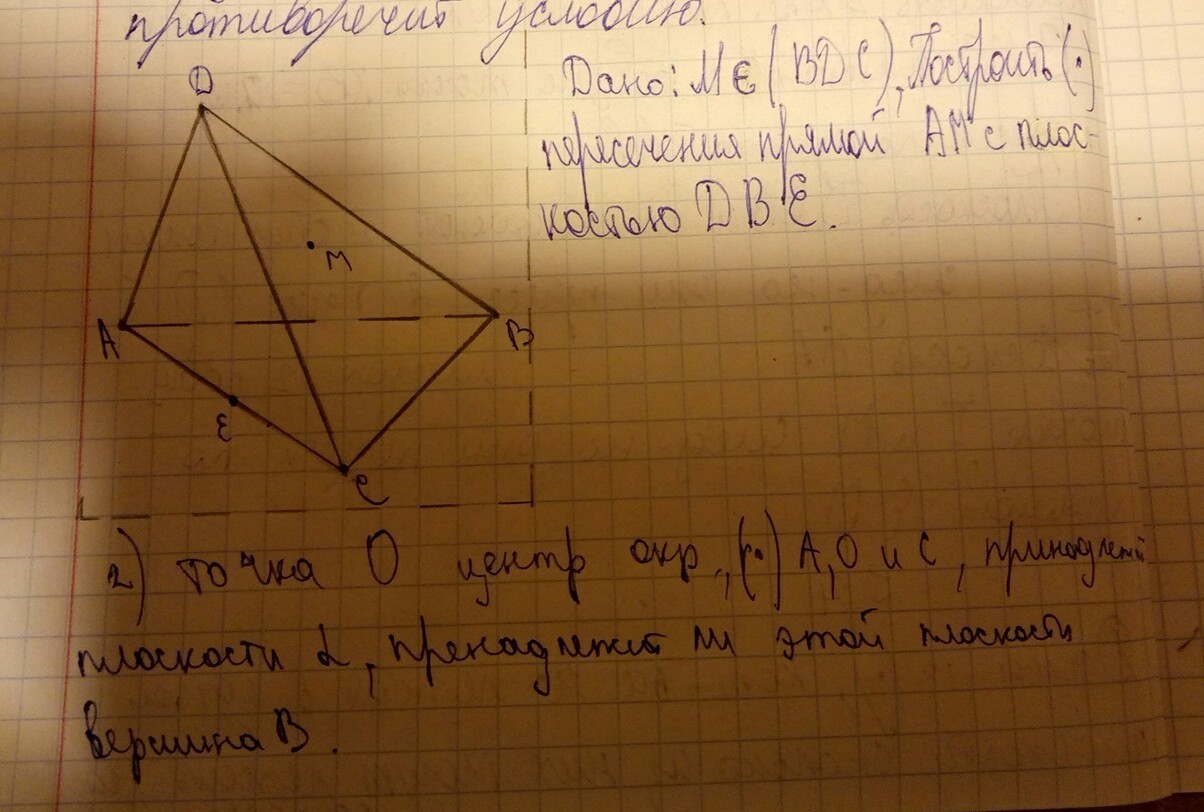 противоречит условию.
Дано: M ∈ (BDC), Построить (·)
пересечения прямой AM с плос-
костью DBE.
D
M
A
B
E
C
2) точка O центр окр., (·) A, O и C, принадлежит
плоскости α, пренадлежит ли этой плоскости
вершина B.